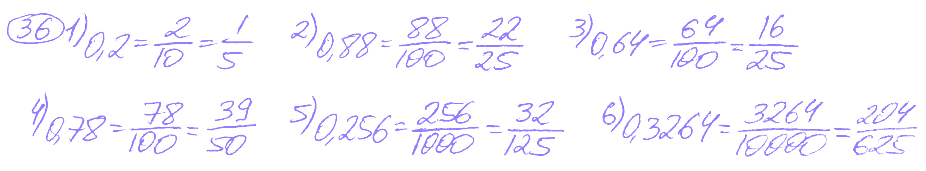 36 1) 0,2 = 2/10 = 1/5 2) 0,88 = 88/100 = 22/25 3) 0,64 = 64/100 = 16/25
4) 0,78 = 78/100 = 39/50 5) 0,256 = 256/1000 = 32/125 6) 0,3264 = 3264/10000 = 204/625